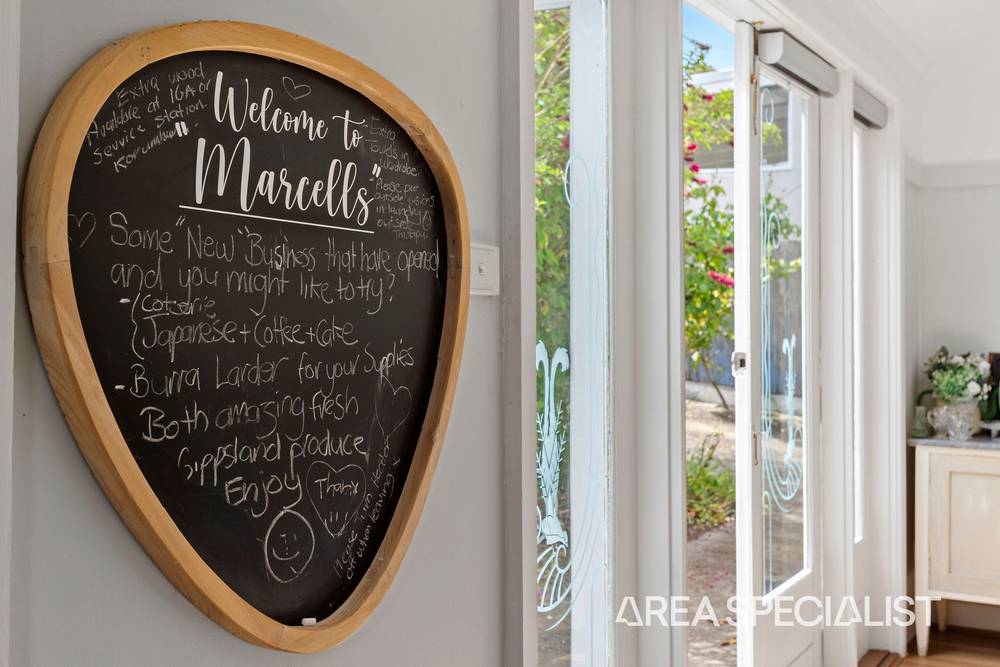 Extra wood
Available at IGA or
Service Station.
Korumburra
Welcome to
"Marcells"
Extra
Towels in
Wardrobe.
Please put
outside
in laundry
outside
Some "New" Business that have opened
and you might like to try?
- Cotserie
Japanese + Coffee + Cake
- Burra Larder for your Supplies
Both amazing fresh
Gippsland produce
Enjoy
Thanx
Please turn Heater
off when leaving x
AREA SPECIALIST